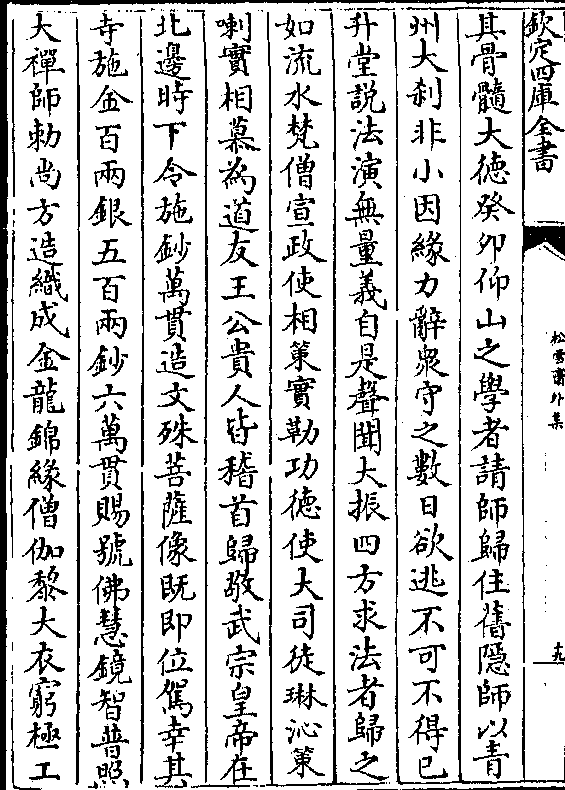 欽定四庫全書
松雪齋外集
十九
其骨髓大徳癸卯仰山之學者請師歸住舊隠師以青
州大刹非小因緣力辭衆守之數日欲逃不可不得已
升堂説法演無量義自是聲聞大振四方求法者歸之
如流水梵僧宣政使相䇿實勒功徳使大司徒琳沁䇿
喇實相慕為道友王公貴人皆稽首歸敬武宗皇帝在
北邊時下令施鈔萬貫造文殊菩薩像既即位駕幸其
寺施金百兩銀五百兩鈔六萬貫賜號佛慧鏡智普照
大禪師勅尚方造織成金龍錦緣僧伽黎大衣窮極工